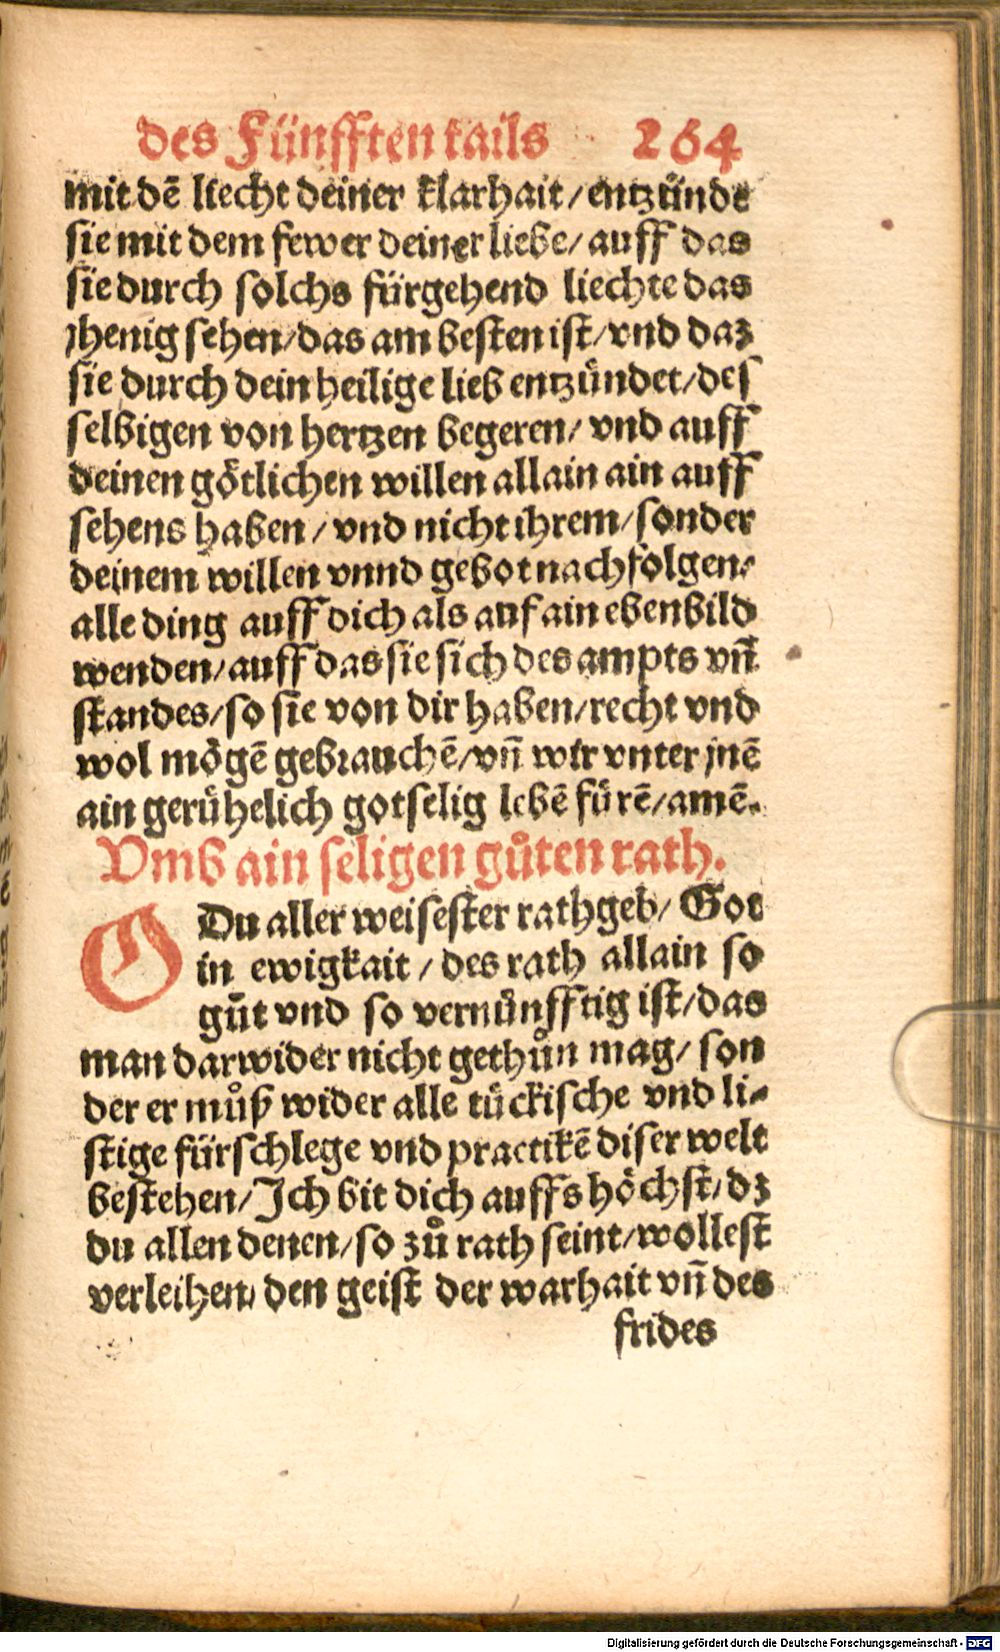 des Fünfften tails 264
mit dē liecht deiner klarhait/ entzünde
sie mit dem fewer deiner liebe/ auff das
sie durch solchs fürgehend liechte das
jhenig sehen/ das am besten ist/ vnd daz
sie durch dein heilige lieb entzündet/ des
selbigen von hertzen begeren/ vnd auff
deinen götlichen willen allain ain auff
sehens haben/ vnd nicht ihrem/ sonder
deinem willen vnnd gebot nachfolgen/
alle ding auff dich als auf ain ebenbild
wenden/ auff das sie sich des ampts vn̄
standes/ so sie von dir haben/ recht vnd
wol mögē gebrauchē/ vn̄ wir vnter jnē
ain gerühelich gotselig lebē fürē/ amē.
Vmb ain seligen gůten rath.
O Du aller weisester rathgeb/ Got
in ewigkait/ des rath allain so
gůt vnd so vernünfftig ist/ das
man darwider nicht gethůn mag/ son
der er můß wider alle tückische vnd li-
stige fürschlege vnd practikē diser welt
bestehen/ Ich bit dich auffs höchst/ dz
du allen denen/ so zů rath seint/ wollest
verleihen/ den geist der warhait vn̄ des
frides
Digitalisierung gefördert durch die Deutsche Forschungsgemeinschaft - DFG